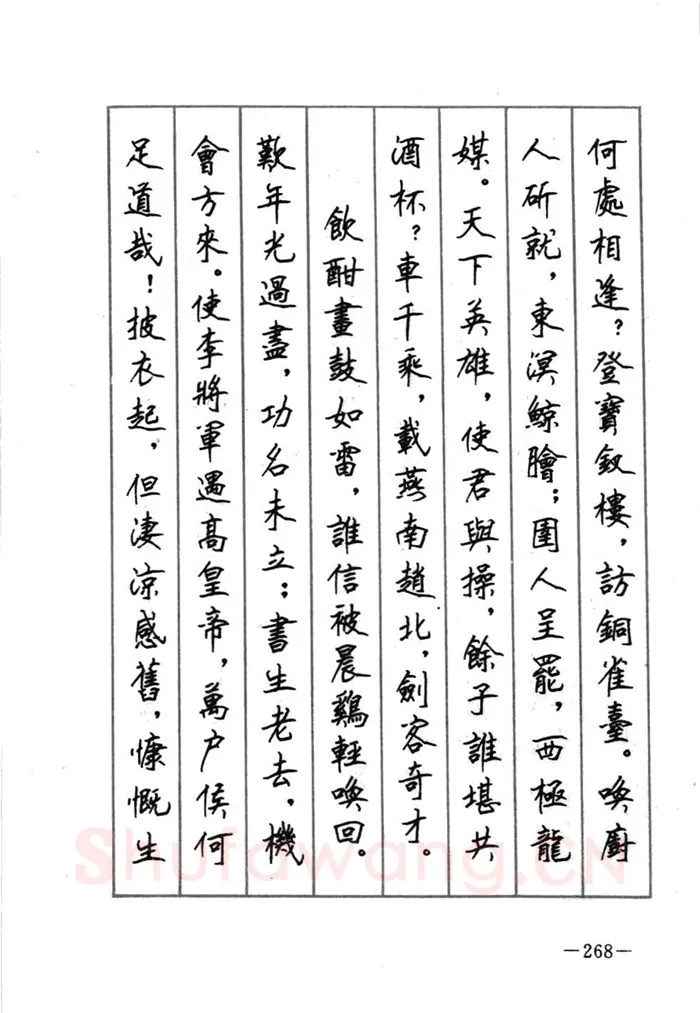 何處相逢?登寶釵樓,訪銅雀臺。喚廚
人斫就,東溟鯨膾;圉人呈罷,西極龍
媒。天下英雄,使君與操,餘子誰堪共
酒杯?車千乘,載燕南趙北,劍客奇才。
飲酣畫鼓如雷,誰信被晨鷄輕喚回。
歎年光過盡,功名未立;書生老去,機
會方來。使李將軍遇高皇帝,萬户侯何
足道哉!披衣起,但凄涼感舊,慷慨生
Shufawang.CN
—268—